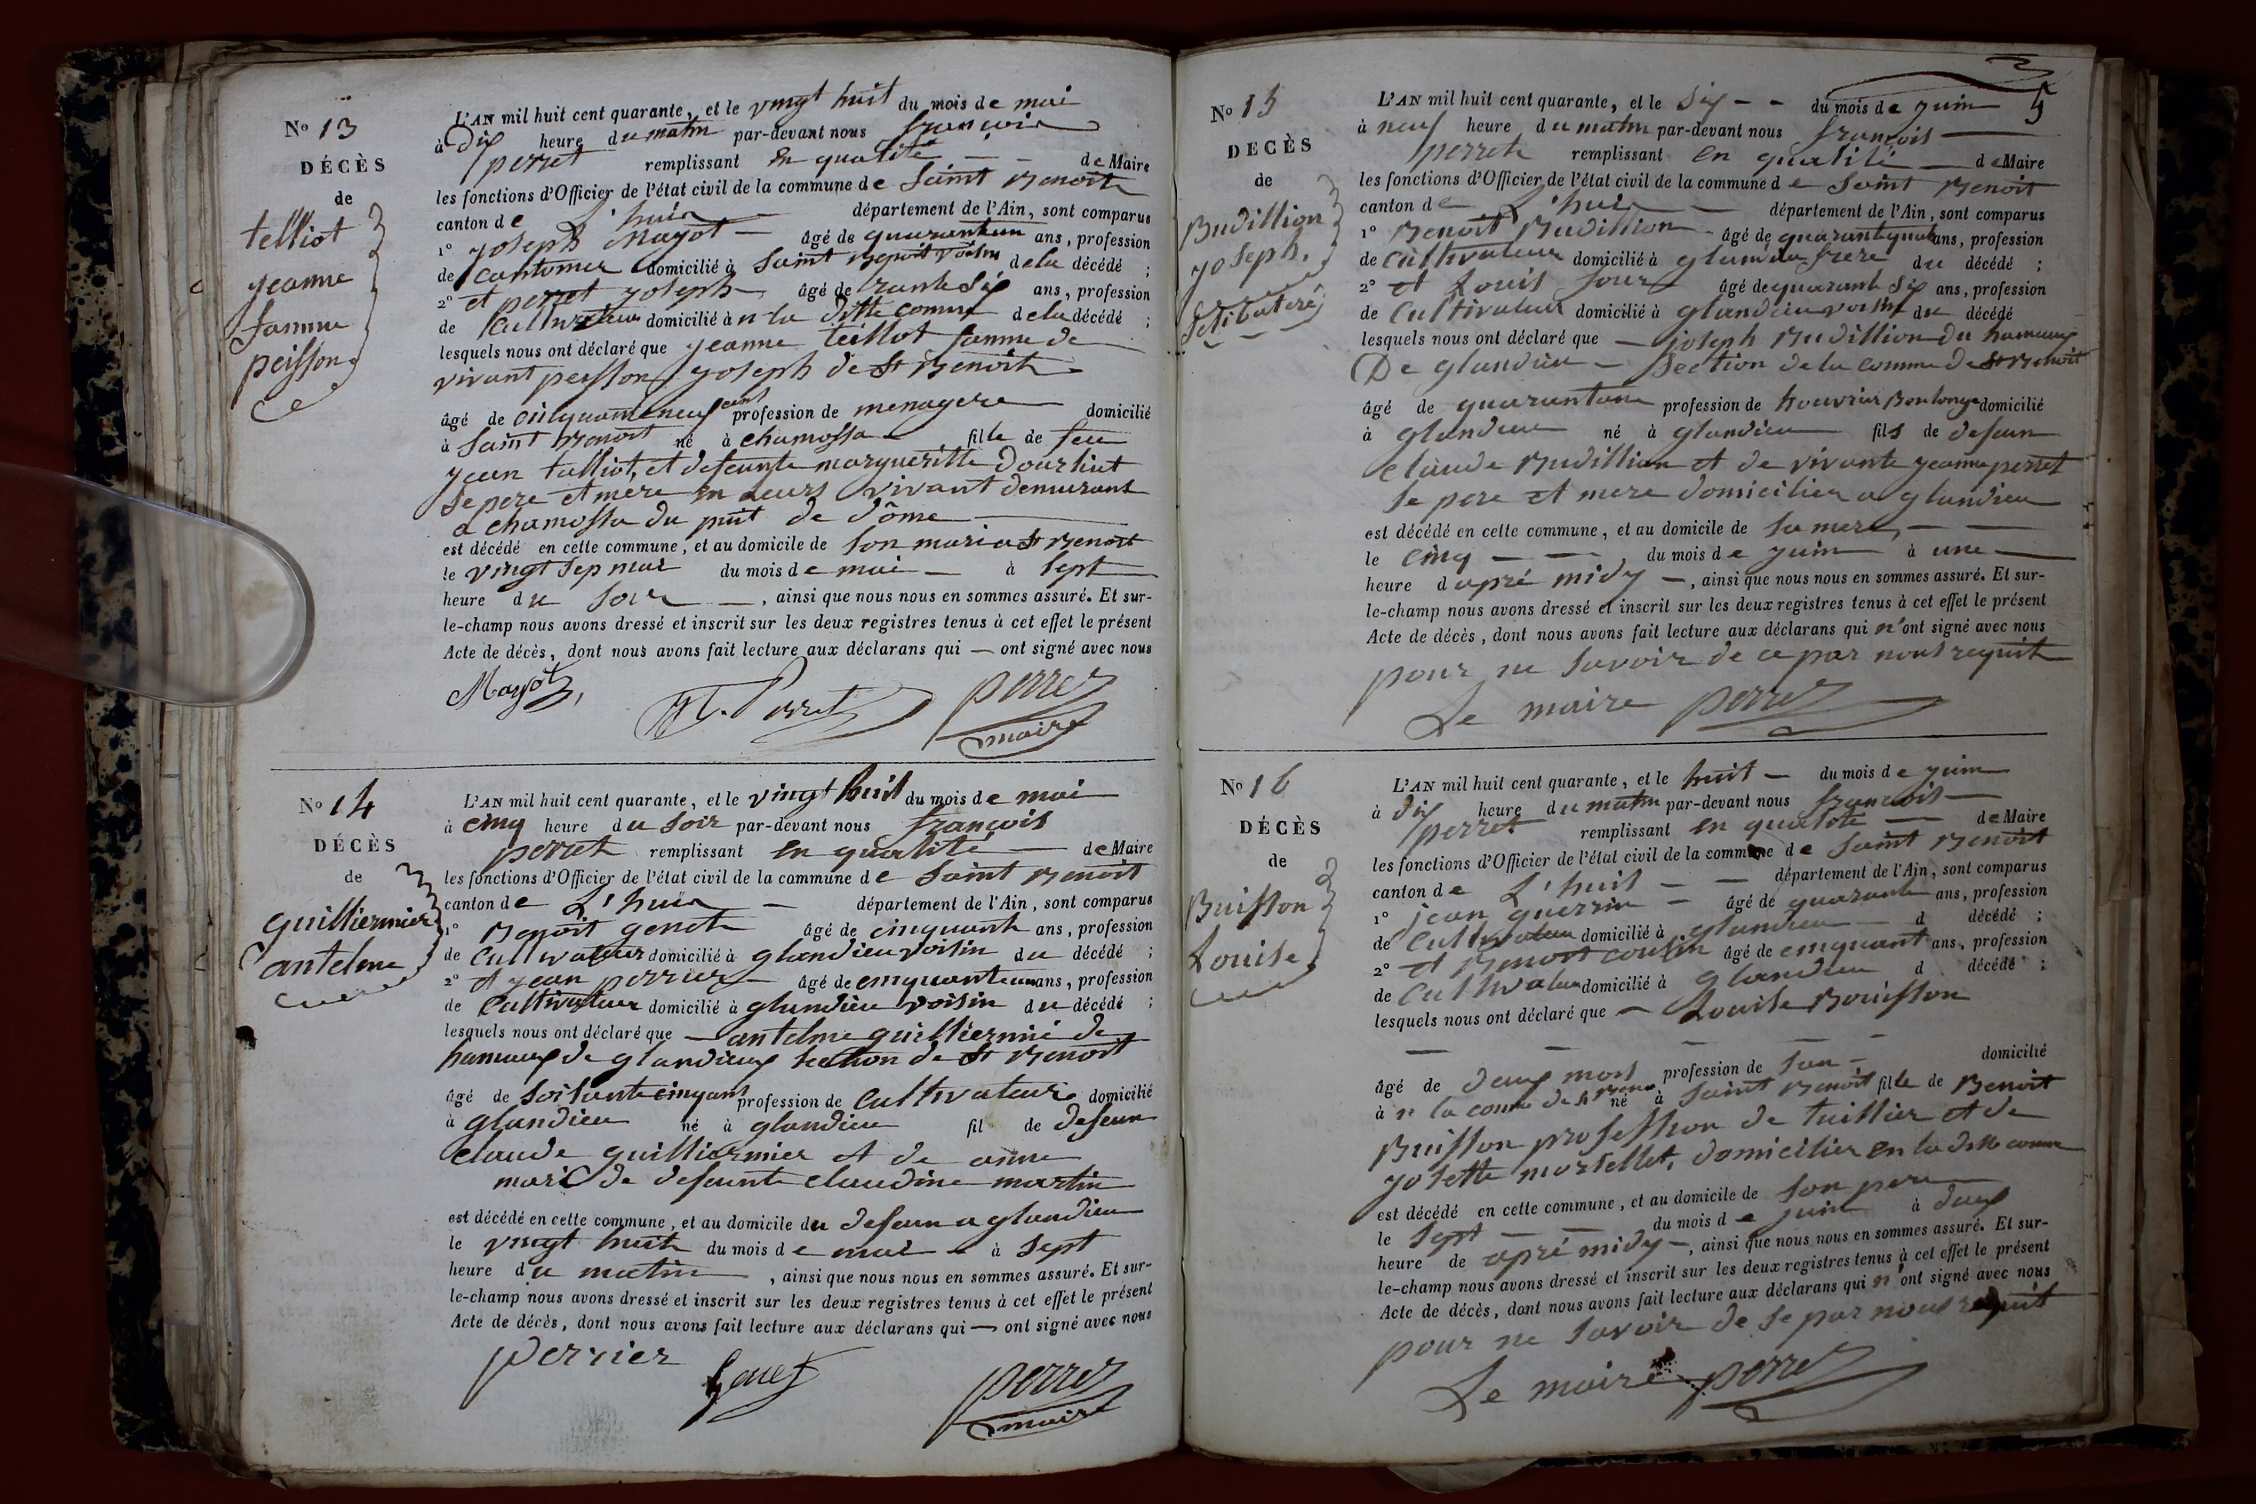 No 13
DÉCÈS
de
telliot
jeanne
famme
peisson
L'AN mil huit cent quarante, et le vingt huit du mois de mai
à Dix heure du matin par-devant nous françois
perret remplissant en qualité de Maire
les fonctions d'Officier de l'état civil de la commune de Saint Benoit
canton de L'huis département de l'Ain, sont comparus
1° joseph Mayot âgé de quarantun ans, profession
de cantonier domicilié à Saint Benoit voisin de la décédé ;
2° et perret joseph âgé de trante six ans, profession
de Cultivateur domicilié à n la ditte comune de la décédé ;
lesquels nous ont déclaré que jeanne teillot famme de
vivant peisson joseph de St Benoit
âgé de cinquanteneuf ans profession de menagere domicilié
à Saint Benoit né à chamossa fille de feu
jean talliot, et defeunte margueritte Dourliut
Se pere et mere en leurs vivant demurant
a chamossa du puit de dôme
est décédé en cette commune, et au domicile de Son mari a St Benoit
le vingt Sep mai du mois de mai à Sept
heure du Soir, ainsi que nous nous en sommes assuré. Et sur-
le-champ nous avons dressé et inscrit sur les deux registres tenus à cet effet le présent
Acte de décès, dont nous avons fait lecture aux déclarans qui — ont signé avec nous
Mayot, Perret perret
maire
No 14
DÉCÈS
de
guilliermier
antelme
L'AN mil huit cent quarante, et le vingt huit du mois de mai
à cinq heure du Soir par-devant nous françois
perret remplissant en qualité de Maire
les fonctions d'Officier de l'état civil de la commune de Saint Benoit
canton de L'huis département de l'Ain, sont comparus
1° Benoit genet âgé de cinquante ans, profession
de Cultivateur domicilié à glandieu voisin du décédé ;
2° et jean perrier âgé de cinquanteun ans, profession
de Cultivateur domicilié à glandieu voisin du décédé ;
lesquels nous ont déclaré que — antelme guilliermié de
hameaux de glandieux Section de St Benoit
âgé de Soisante cinq ans profession de Cultivateur domicilié
à glandieu né à glandieu fil de defeun
claude guilliermier et de anne
mari de defeunte claudine martin
est décédé en cette commune, et au domicile du defeun a glandieu
le vingt huit du mois de mai à Sept
heure du matin, ainsi que nous nous en sommes assuré. Et sur-
le-champ nous avons dressé et inscrit sur les deux registres tenus à cet effet le présent
Acte de décès, dont nous avons fait lecture aux déclarans qui — ont signé avec nous
perrier Genet perret
maire
5
No 15
DECÈS
de
Budillion
joseph,
Selibateré
L'AN mil huit cent quarante, et le Six — — du mois de juin
à neuf heure du matin par-devant nous françois
perret remplissant en qualité de Maire
les fonctions d'Officier de l'état civil de la commune de Saint Benoit
canton de L'huis département de l'Ain, sont comparus
1° Benoit Budillion âgé de quarantquatre ans, profession
de cultivateur domicilié à glandieu frere du décédé ;
2° et Louis Jour âgé de quarante Six ans, profession
de Cultivateur domicilié à glandieu voisin du décédé
lesquels nous ont déclaré que — joseph Budillion du hameaux
De glandieu — Section de la comune de St Benoit
âgé de quarantun profession de houvrier Boulonge domicilié
à glandieu né à glandieu fils de defeun
claude Budillion et de vivante jeanne perret
Se pere et mere domicilier a glandieu
est décédé en cette commune, et au domicile de Sa mere,
le cinq du mois de juin à une
heure d apré midy —, ainsi que nous nous en sommes assuré. Et sur-
le-champ nous avons dressé et inscrit sur les deux registres tenus à cet effet le présent
Acte de décès, dont nous avons fait lecture aux déclarans qui n'ont signé avec nous
pour ne Savoir de ce par nous requit
Le maire perret
No 16
DÉCÈS
de
Buisson
Louise
L'AN mil huit cent quarante, et le huit — du mois de juin
à dix heure du matin par-devant nous françois
perret remplissant en qualoté de Maire
les fonctions d'Officier de l'état civil de la commune de Saint Benoit
canton de L'huis — — département de l'Ain, sont comparus
1° jean guerrin — âgé de quarante ans, profession
de Cultivateur domicilié à glandieu d décédé ;
2° et Benoit cousin âgé de cinquant ans, profession
de Cultivateur domicilié à glandieu d décédé ;
lesquels nous ont déclaré que — Louise Bouisson
âgé de deux mois profession de San — domicilié
à n la comune de St Benoit né à Saint Benoit fille de Benoit
Buisson profession de tuillier et de
josette mortellet, domicilier en la ditte comune
est décédé en cette commune, et au domicile de Son pere
le Sept du mois de juin à deux
heure de apré midy —, ainsi que nous nous en sommes assuré. Et sur-
le-champ nous avons dressé et inscrit sur les deux registres tenus à cet effet le présent
Acte de décès, dont nous avons fait lecture aux déclarans qui n'ont signé avec nous
pour ne Savoir de Se par nous requit
Le maire perret